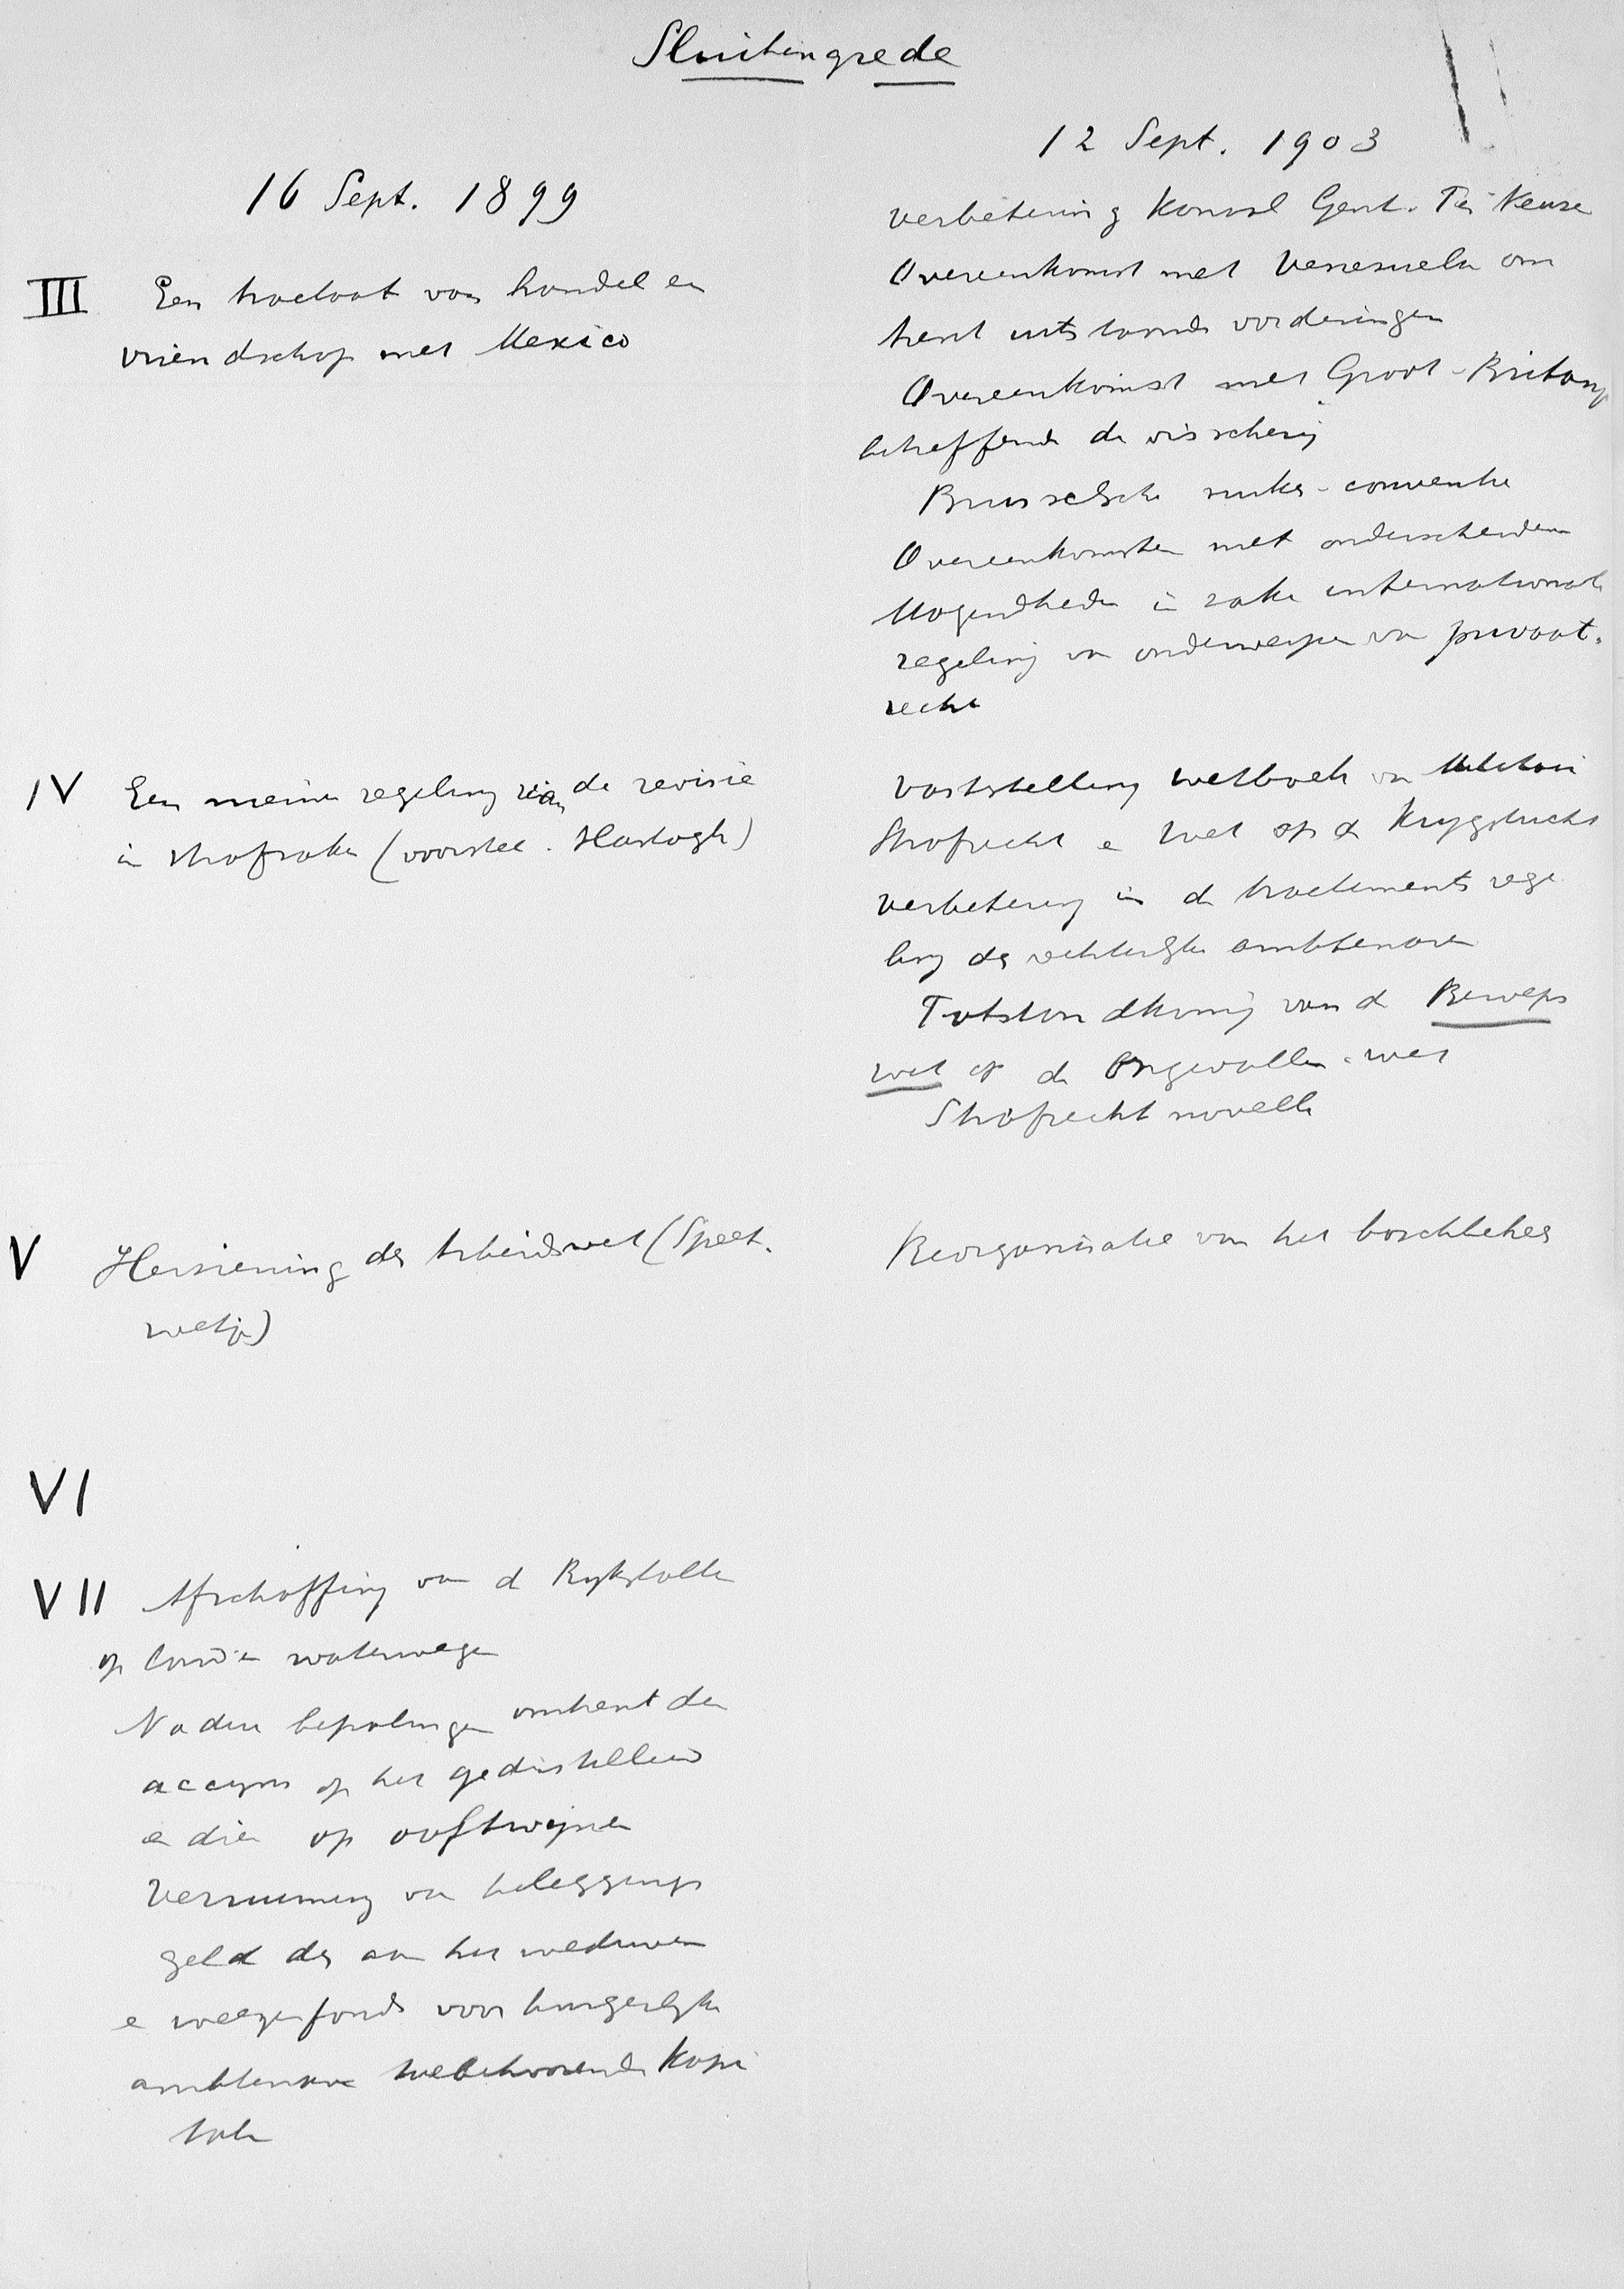 Sluitingrede
16 Sept. 1899
III Een tractaat van handel en
vriendschap met Mexico
IV Een nieuwe regeling van de revisie
in strafzaken (voorstel. Hartogh)
V Herziening der Arbeidswet (Speet.
wetje)
VI
VII Afschaffing van d Rijkstollen
op land en waterwegen
Nadere bepalingen omtrent den
accijns op het gedistilleerd
en dien op ooftwijnen
Verruiming van beleggings
geld der aan het weduwen
e weezenfonds voor burgerlijke
ambtenaren toebehoorende Kapi
talen
12 Sept. 1903
verbetering Kanaal Gent. Ter Neuzen
Overeenkomst met Venezuela om
trent uitstaande vorderingen
Overeenkomst met Groot-Britanje
betreffende de visscherij
Brusselsche suiker-conventie
Overeenkomsten met onderscheidene
Mogendheden in zake internationale
regeling van onderwerpen van privaat.
recht
Vaststelling wetboek van Militair
Strafrecht e Wet op d Krijgstucht
verbetering in de tractements rege
ling der rechterlijke ambtenaren
Totstandkoming van d Beroeps
wet op de Ongevallen-wet
Strafrecht novelle
Reorganisatie van het boschbeheer